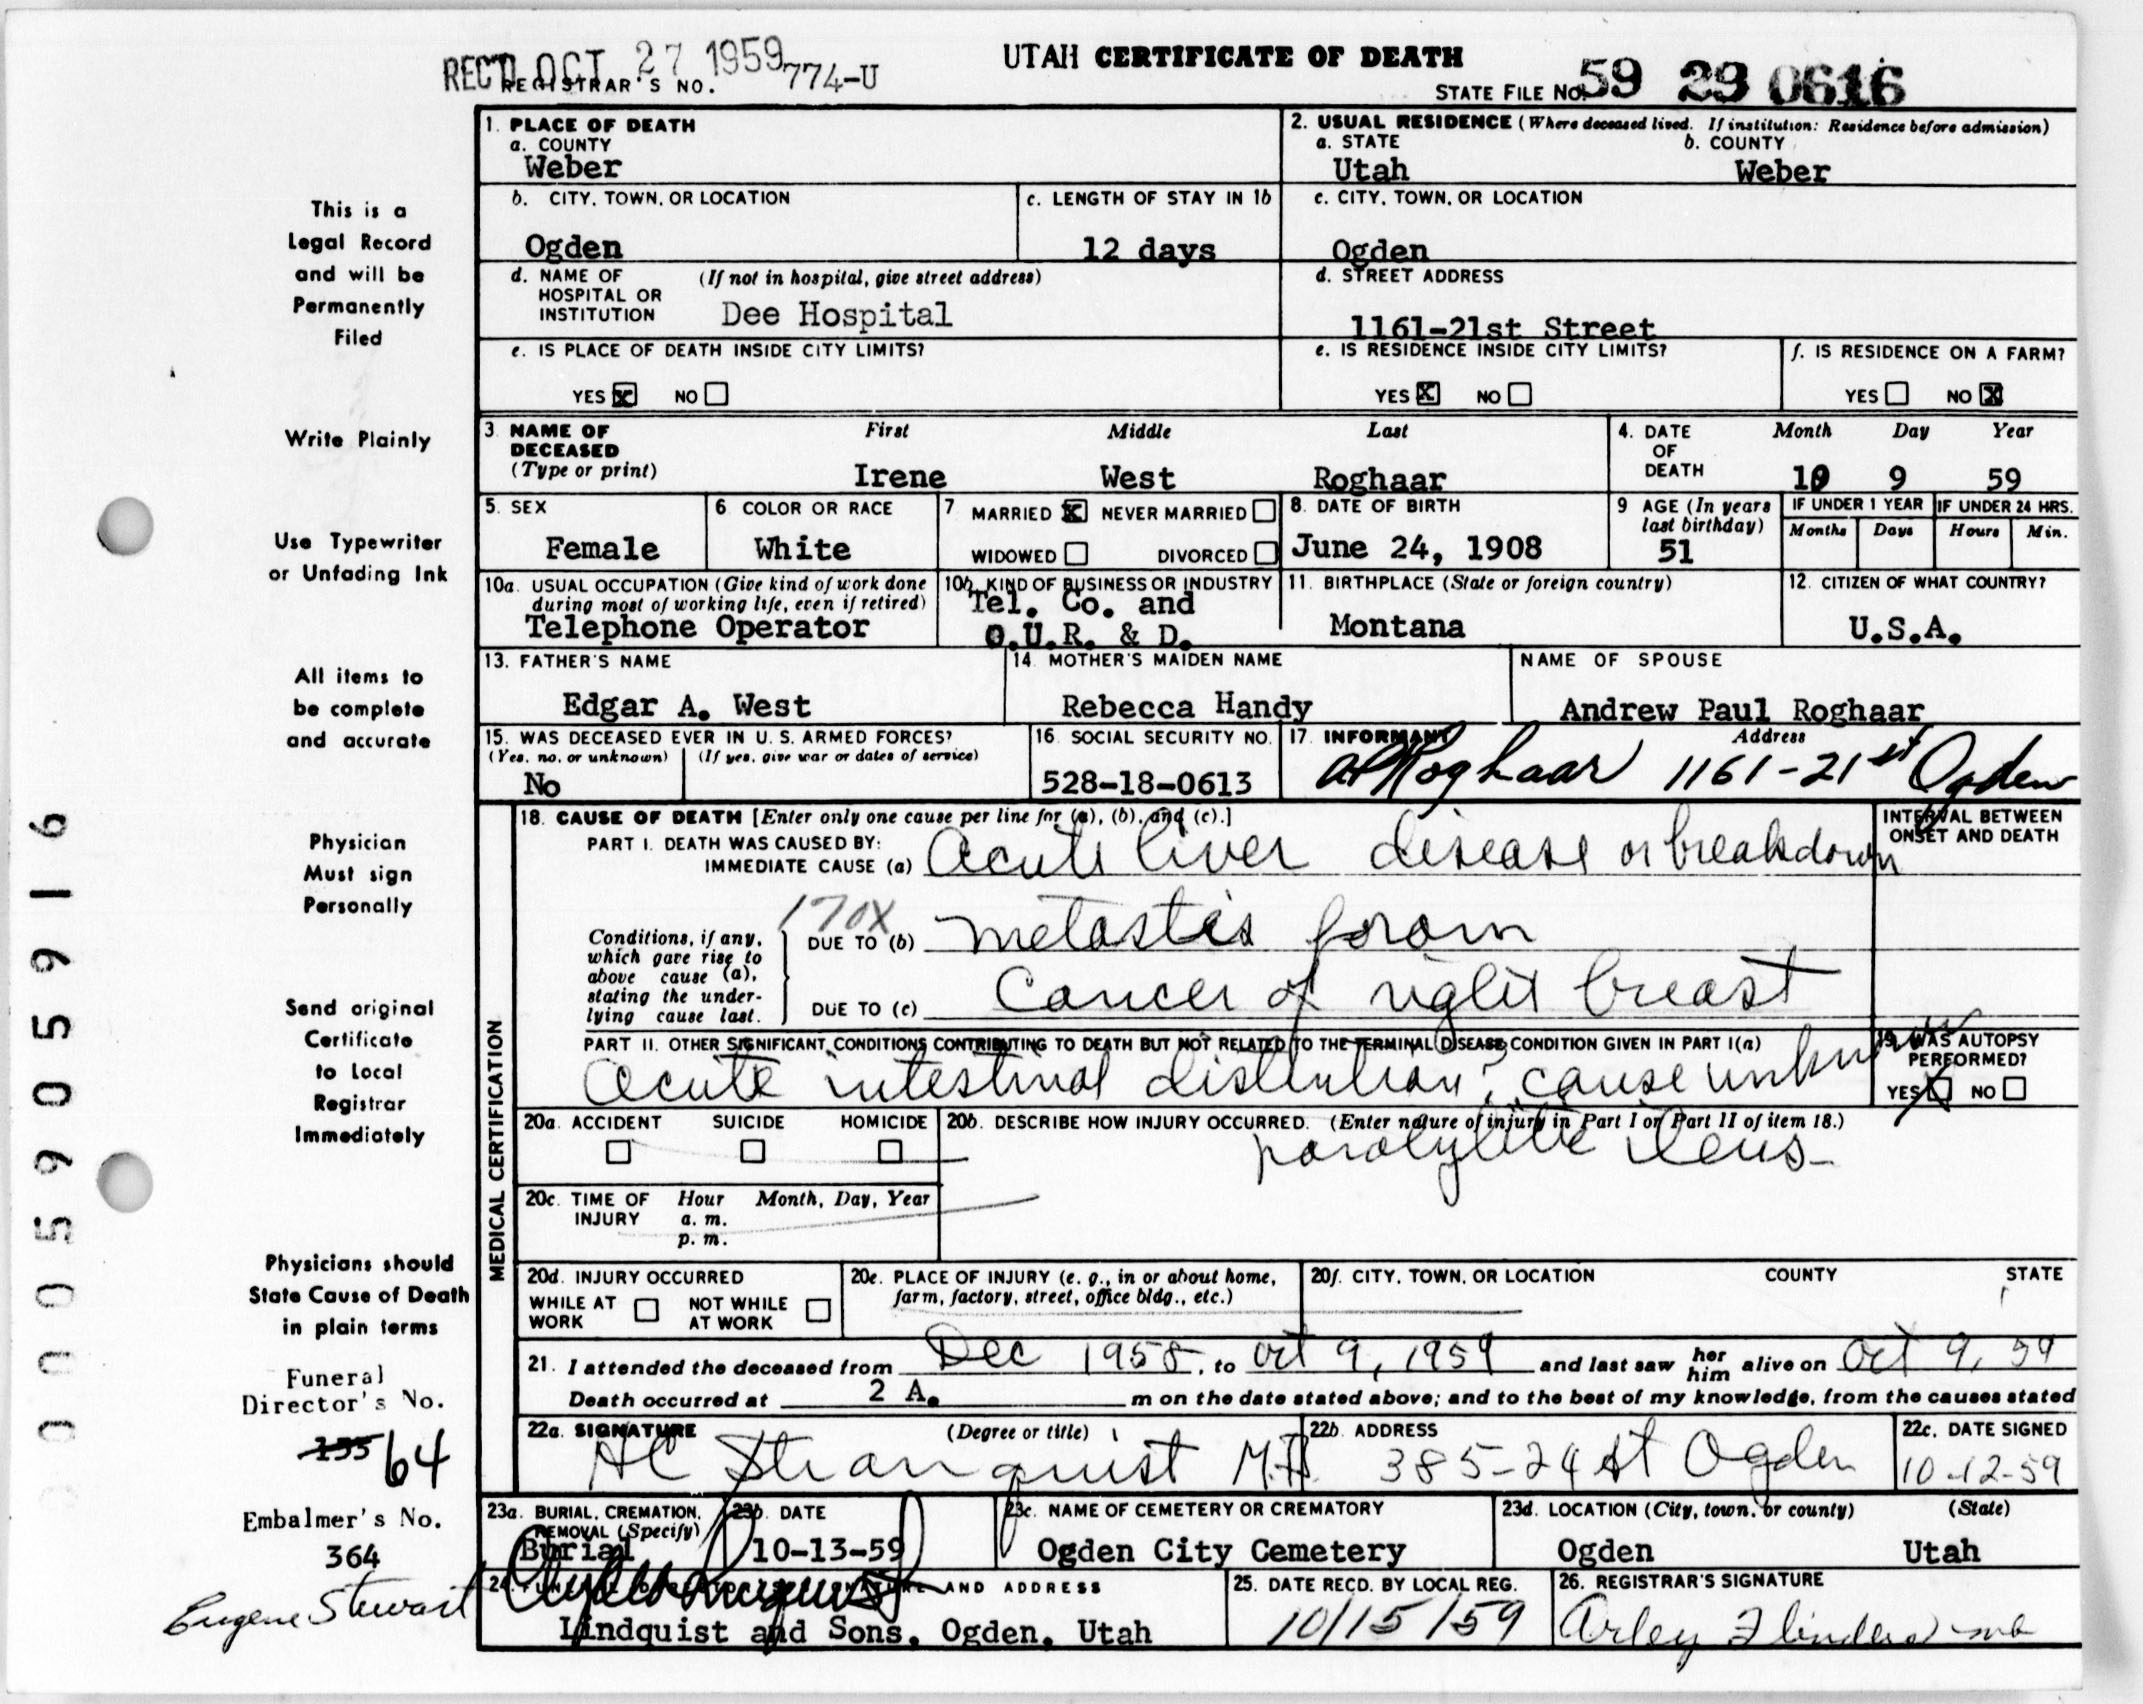 REC'D OCT 27 1959
REGISTRAR'S NO. 774-U
UTAH CERTIFICATE OF DEATH
STATE FILE NO. 59 29 0616
1. PLACE OF DEATH
a. COUNTY
Weber
2. USUAL RESIDENCE (Where deceased lived. If institution: Residence before admission)
a. STATE b. COUNTY
Utah Weber
b. CITY, TOWN, OR LOCATION
Ogden
c. LENGTH OF STAY IN 1b
12 days
c. CITY, TOWN, OR LOCATION
Ogden
d. NAME OF (If not in hospital, give street address)
HOSPITAL OR
INSTITUTION Dee Hospital
d. STREET ADDRESS
1161-21st Street
e. IS PLACE OF DEATH INSIDE CITY LIMITS?
YES X NO
e. IS RESIDENCE INSIDE CITY LIMITS?
YES X NO
f. IS RESIDENCE ON A FARM?
YES NO X
3. NAME OF First Middle Last
DECEASED
(Type or print) Irene West Roghaar
4. DATE Month Day Year
OF
DEATH 10 9 59
5. SEX
Female
6. COLOR OR RACE
White
7. MARRIED X NEVER MARRIED
WIDOWED DIVORCED
8. DATE OF BIRTH
June 24, 1908
9 AGE (In years
last birthday)
51
IF UNDER 1 YEAR
Months Days
IF UNDER 24 HRS.
Hours Min.
10a. USUAL OCCUPATION (Give kind of work done
during most of working life, even if retired)
Telephone Operator
10b. KIND OF BUSINESS OR INDUSTRY
Tel. Co. and
O.U.R. & D.
11. BIRTHPLACE (State or foreign country)
Montana
12. CITIZEN OF WHAT COUNTRY?
U.S.A.
13. FATHER'S NAME
Edgar A. West
14. MOTHER'S MAIDEN NAME
Rebecca Handy
NAME OF SPOUSE
Andrew Paul Roghaar
15. WAS DECEASED EVER IN U. S. ARMED FORCES?
(Yes, no, or unknown) (If yes, give war or dates of service)
No
16. SOCIAL SECURITY NO.
528-18-0613
17. INFORMANT Address
AP Roghaar 1161-21st Ogden
MEDICAL CERTIFICATION
18. CAUSE OF DEATH [Enter only one cause per line for (a), (b), and (c).]
INTERVAL BETWEEN
ONSET AND DEATH
PART I. DEATH WAS CAUSED BY:
IMMEDIATE CAUSE (a) Acute liver disease or breakdown
170X
Conditions, if any,
which gave rise to
above cause (a),
stating the under-
lying cause last.
DUE TO (b) metastis from
DUE TO (c) Cancer of right breast
PART II. OTHER SIGNIFICANT CONDITIONS CONTRIBUTING TO DEATH BUT NOT RELATED TO THE TERMINAL DISEASE CONDITION GIVEN IN PART I(a)
Acute intestinal distention, cause unknown
paralytic ileus
19. WAS AUTOPSY
PERFORMED?
YES X NO
20a. ACCIDENT SUICIDE HOMICIDE
20b. DESCRIBE HOW INJURY OCCURRED. (Enter nature of injury in Part I or Part II of item 18.)
20c. TIME OF Hour Month, Day, Year
INJURY a. m.
p. m.
20d. INJURY OCCURRED
WHILE AT NOT WHILE
WORK AT WORK
20e. PLACE OF INJURY (e. g., in or about home,
farm, factory, street, office bldg., etc.)
20f. CITY, TOWN, OR LOCATION COUNTY STATE
21. I attended the deceased from Dec 1958, to Oct 9, 1959 and last saw her him alive on Oct 9, 59
Death occurred at 2 A. m on the date stated above; and to the best of my knowledge, from the causes stated
22a. SIGNATURE (Degree or title)
HC Stranquist M.D.
22b. ADDRESS
385-24 St Ogden
22c. DATE SIGNED
10-12-59
23a. BURIAL, CREMATION,
REMOVAL (Specify)
Burial
23b. DATE
10-13-59
23c. NAME OF CEMETERY OR CREMATORY
Ogden City Cemetery
23d. LOCATION (City, town, or county) (State)
Ogden Utah
24. FUNERAL DIRECTOR'S SIGNATURE AND ADDRESS
Lindquist and Sons, Ogden, Utah
25. DATE RECD. BY LOCAL REG.
10/15/59
26. REGISTRAR'S SIGNATURE
This is a
Legal Record
and will be
Permanently
Filed
Write Plainly
Use Typewriter
or Unfading Ink
All items to
be complete
and accurate
Physician
Must sign
Personally
Send original
Certificate
to Local
Registrar
Immediately
Physicians should
State Cause of Death
in plain terms
Funeral
Director's No.
155 64
Embalmer's No.
364
Eugene Stewart
0005905916